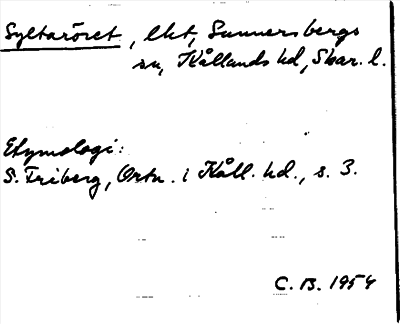 Syltaröret, lht, Sunnersbergs
sn, Kållands hd, Skar. l.
Etymologi:
S. Friberg, Ortn. i Kåll. hd., s. 3.
C. B. 1954